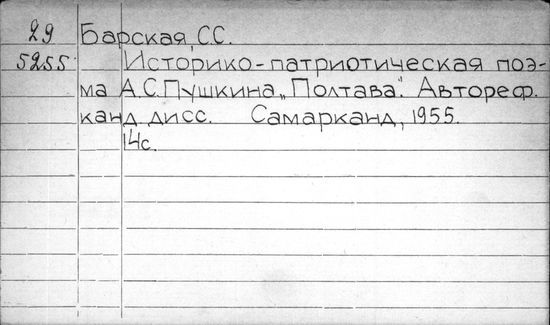 29 Барская, С.С.
5255 Историко-патриотическая поэ-
ма А.С.Пушкина „Полтава". Автореф.
канд. дисс. Самарканд, 1955.
14с.